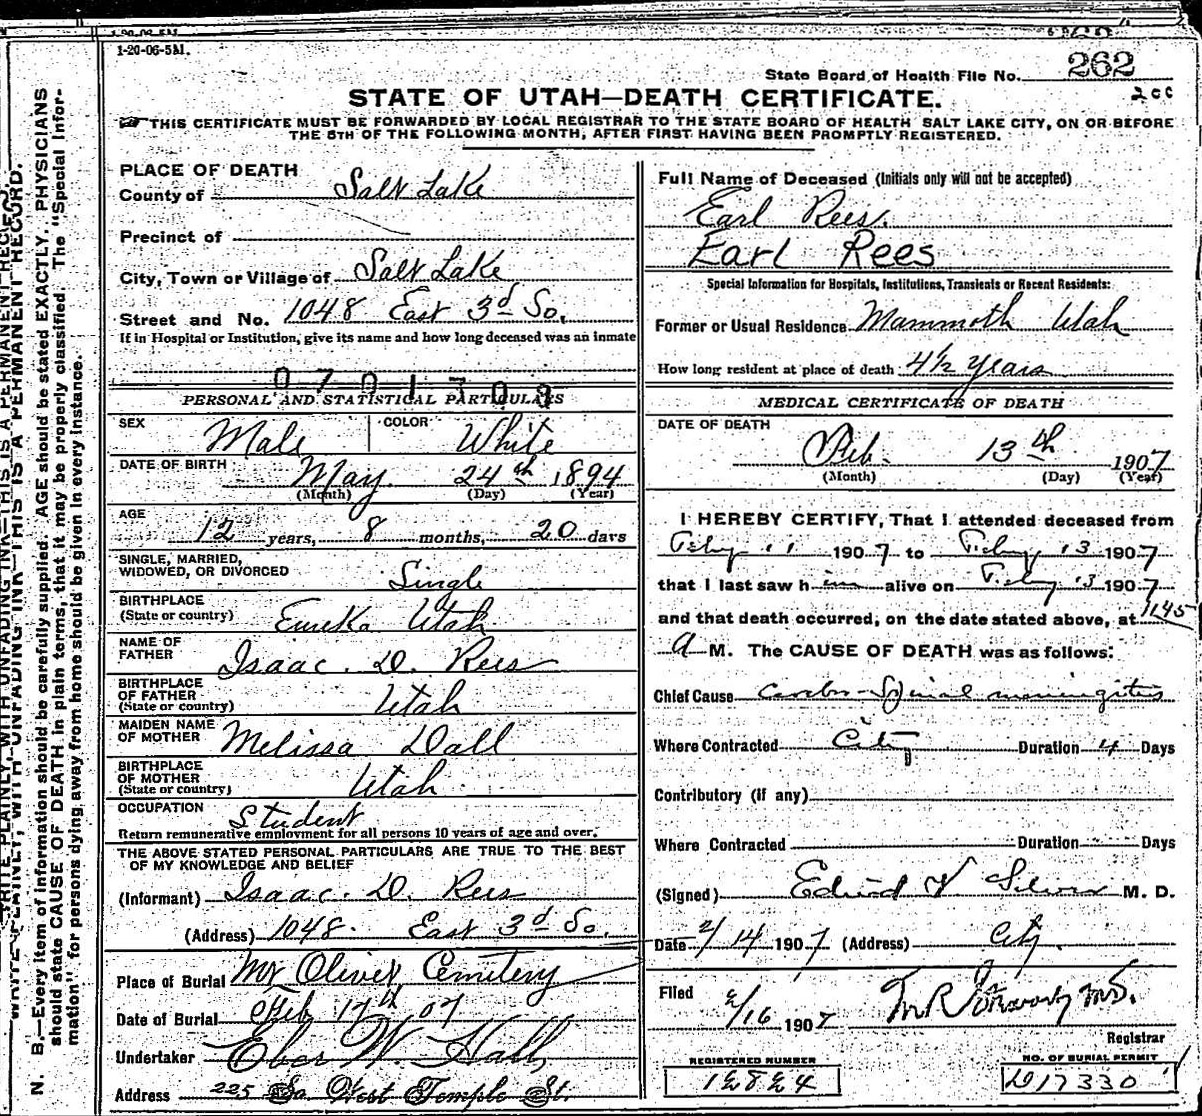 1-20-06-5M.
State Board of Health File No. 262
200
STATE OF UTAH—DEATH CERTIFICATE.
THIS CERTIFICATE MUST BE FORWARDED BY LOCAL REGISTRAR TO THE STATE BOARD OF HEALTH SALT LAKE CITY, ON OR BEFORE
THE 5TH OF THE FOLLOWING MONTH, AFTER FIRST HAVING BEEN PROMPTLY REGISTERED.
PLACE OF DEATH
County of Salt Lake
Precinct of
City, Town or Village of Salt Lake
Street and No. 1048 East 3d So.
If in Hospital or Institution, give its name and how long deceased was an inmate
0701703
PERSONAL AND STATISTICAL PARTICULARS
SEX Male COLOR White
DATE OF BIRTH May 24th 1894
(Month) (Day) (Year)
AGE 12 years, 8 months, 20 days
SINGLE, MARRIED,
WIDOWED, OR DIVORCED Single
BIRTHPLACE
(State or country) Eureka Utah
NAME OF
FATHER Isaac. D. Rees
BIRTHPLACE
OF FATHER
(State or country) Utah
MAIDEN NAME
OF MOTHER Melissa Dall
BIRTHPLACE
OF MOTHER
(State or country) Utah
OCCUPATION Student
Return remunerative employment for all persons 10 years of age and over.
THE ABOVE STATED PERSONAL PARTICULARS ARE TRUE TO THE BEST
OF MY KNOWLEDGE AND BELIEF
(Informant) Isaac. D. Rees
(Address) 1048. East 3d So.
Place of Burial Mt Olivet Cemetery
Date of Burial Feb 17th 07
Undertaker Eber W. Hall,
Address 225 So West Temple St.
Full Name of Deceased (Initials only will not be accepted)
Earl Rees.
Earl Rees
Special Information for Hospitals, Institutions, Transients or Recent Residents:
Former or Usual Residence Mammoth Utah
How long resident at place of death 4½ Years
MEDICAL CERTIFICATE OF DEATH
DATE OF DEATH
Feb. 13th 1907
(Month) (Day) (Year)
I HEREBY CERTIFY, That I attended deceased from
Feby 11 1907 to Feby 13 1907
that I last saw him alive on Feby 13 1907
and that death occurred, on the date stated above, at 1145
A M. The CAUSE OF DEATH was as follows:
Chief Cause Cerebro-Spinal meningitis
Where Contracted City Duration 4 Days
Contributory (if any)
Where Contracted Duration Days
(Signed) M. D.
Date 2/14 1907 (Address) City.
Filed 2/16 1907 M.D.
Registrar
REGISTERED NUMBER
12824
NO. OF BURIAL PERMIT
D17330
WRITE PLAINLY, WITH UNFADING INK—THIS IS A PERMANENT RECORD.
N. B.—Every item of information should be carefully supplied. AGE should be stated EXACTLY. PHYSICIANS
should state CAUSE OF DEATH in plain terms, that it may be properly classified. The "Special Infor-
mation" for persons dying away from home should be given in every instance.